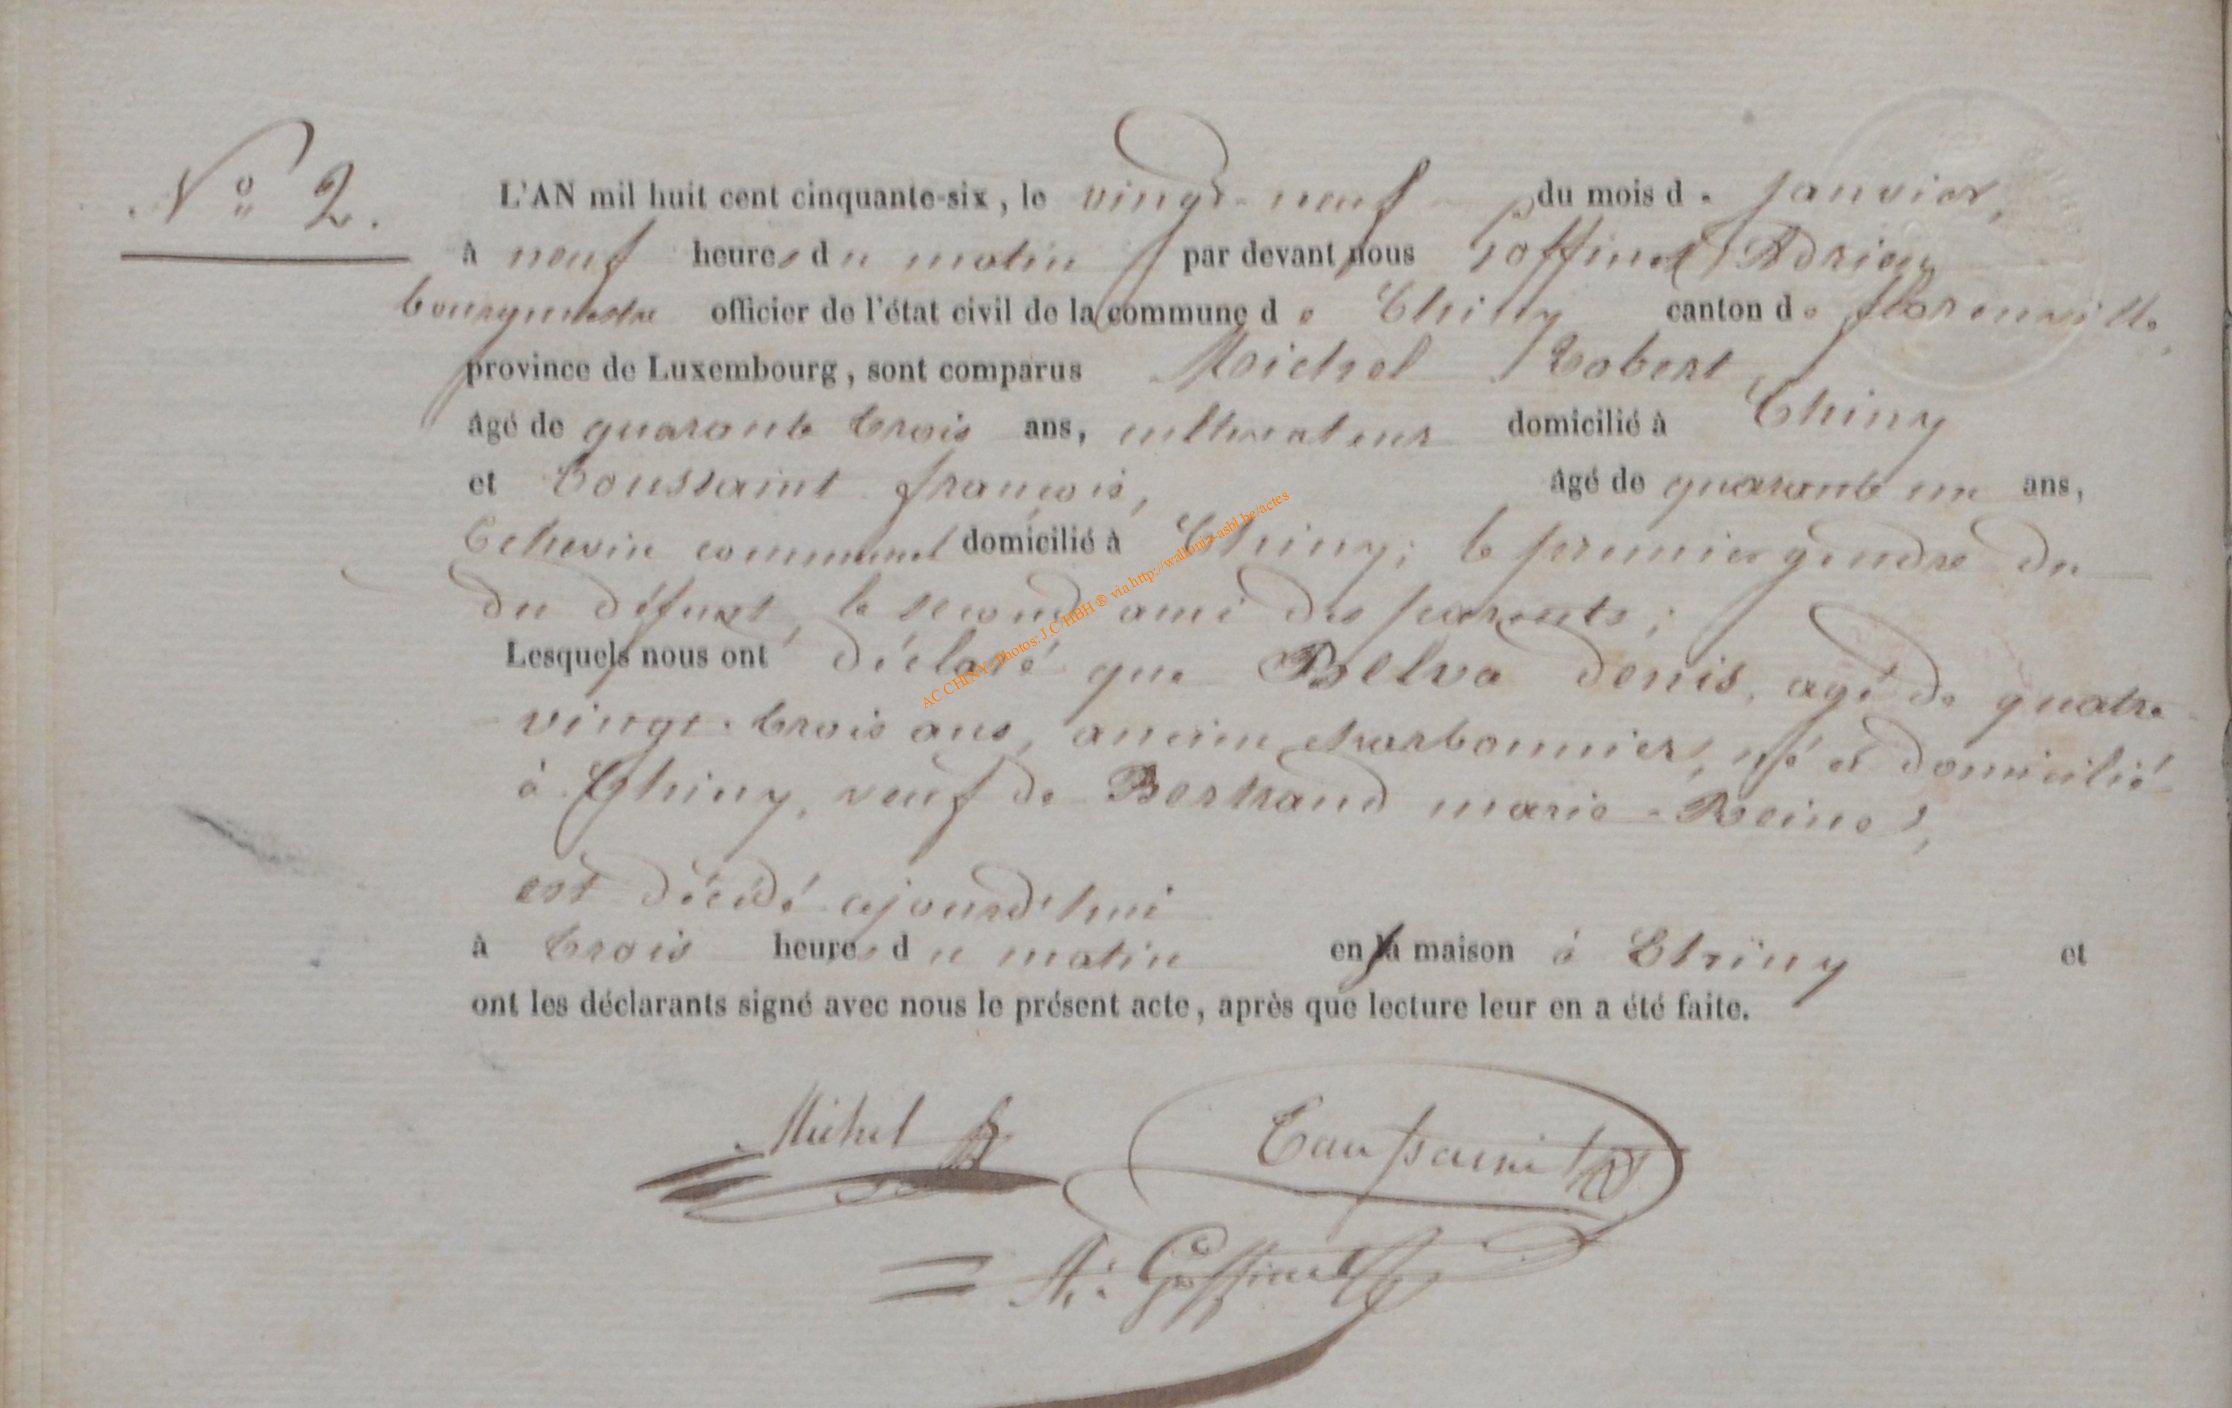 N° 2.
L'AN mil huit cent cinquante-six, le vingt-neuf du mois de janvier,
à neuf heures du matin par devant nous Goffinet Adrien
bourgmestre officier de l'état civil de la commune de Chiny canton de florenville,
province de Luxembourg, sont comparus Michel Robert
âgé de quarante trois ans, cultivateur domicilié à Chiny
et Toussaint françois, âgé de quarante un ans,
Echevin communal domicilié à Chiny; le premier gendre du
du défunt, le second ami des parents;
Lesquels nous ont déclaré que Belva denis, agé de quatre
vingt-trois ans, ancien charbonnier, né et domicilié
à Chiny, veuf de Bertrand marie-Reine,
est décédé ajourd'hui
à trois heures du matin en sa maison à Chiny et
ont les déclarants signé avec nous le présent acte, après que lecture leur en a été faite.
Michel R
Toussaint
A: Goffinet
AC CHINY - Photos: J.C HBH ® via http://wallonia-asbl.be/actes